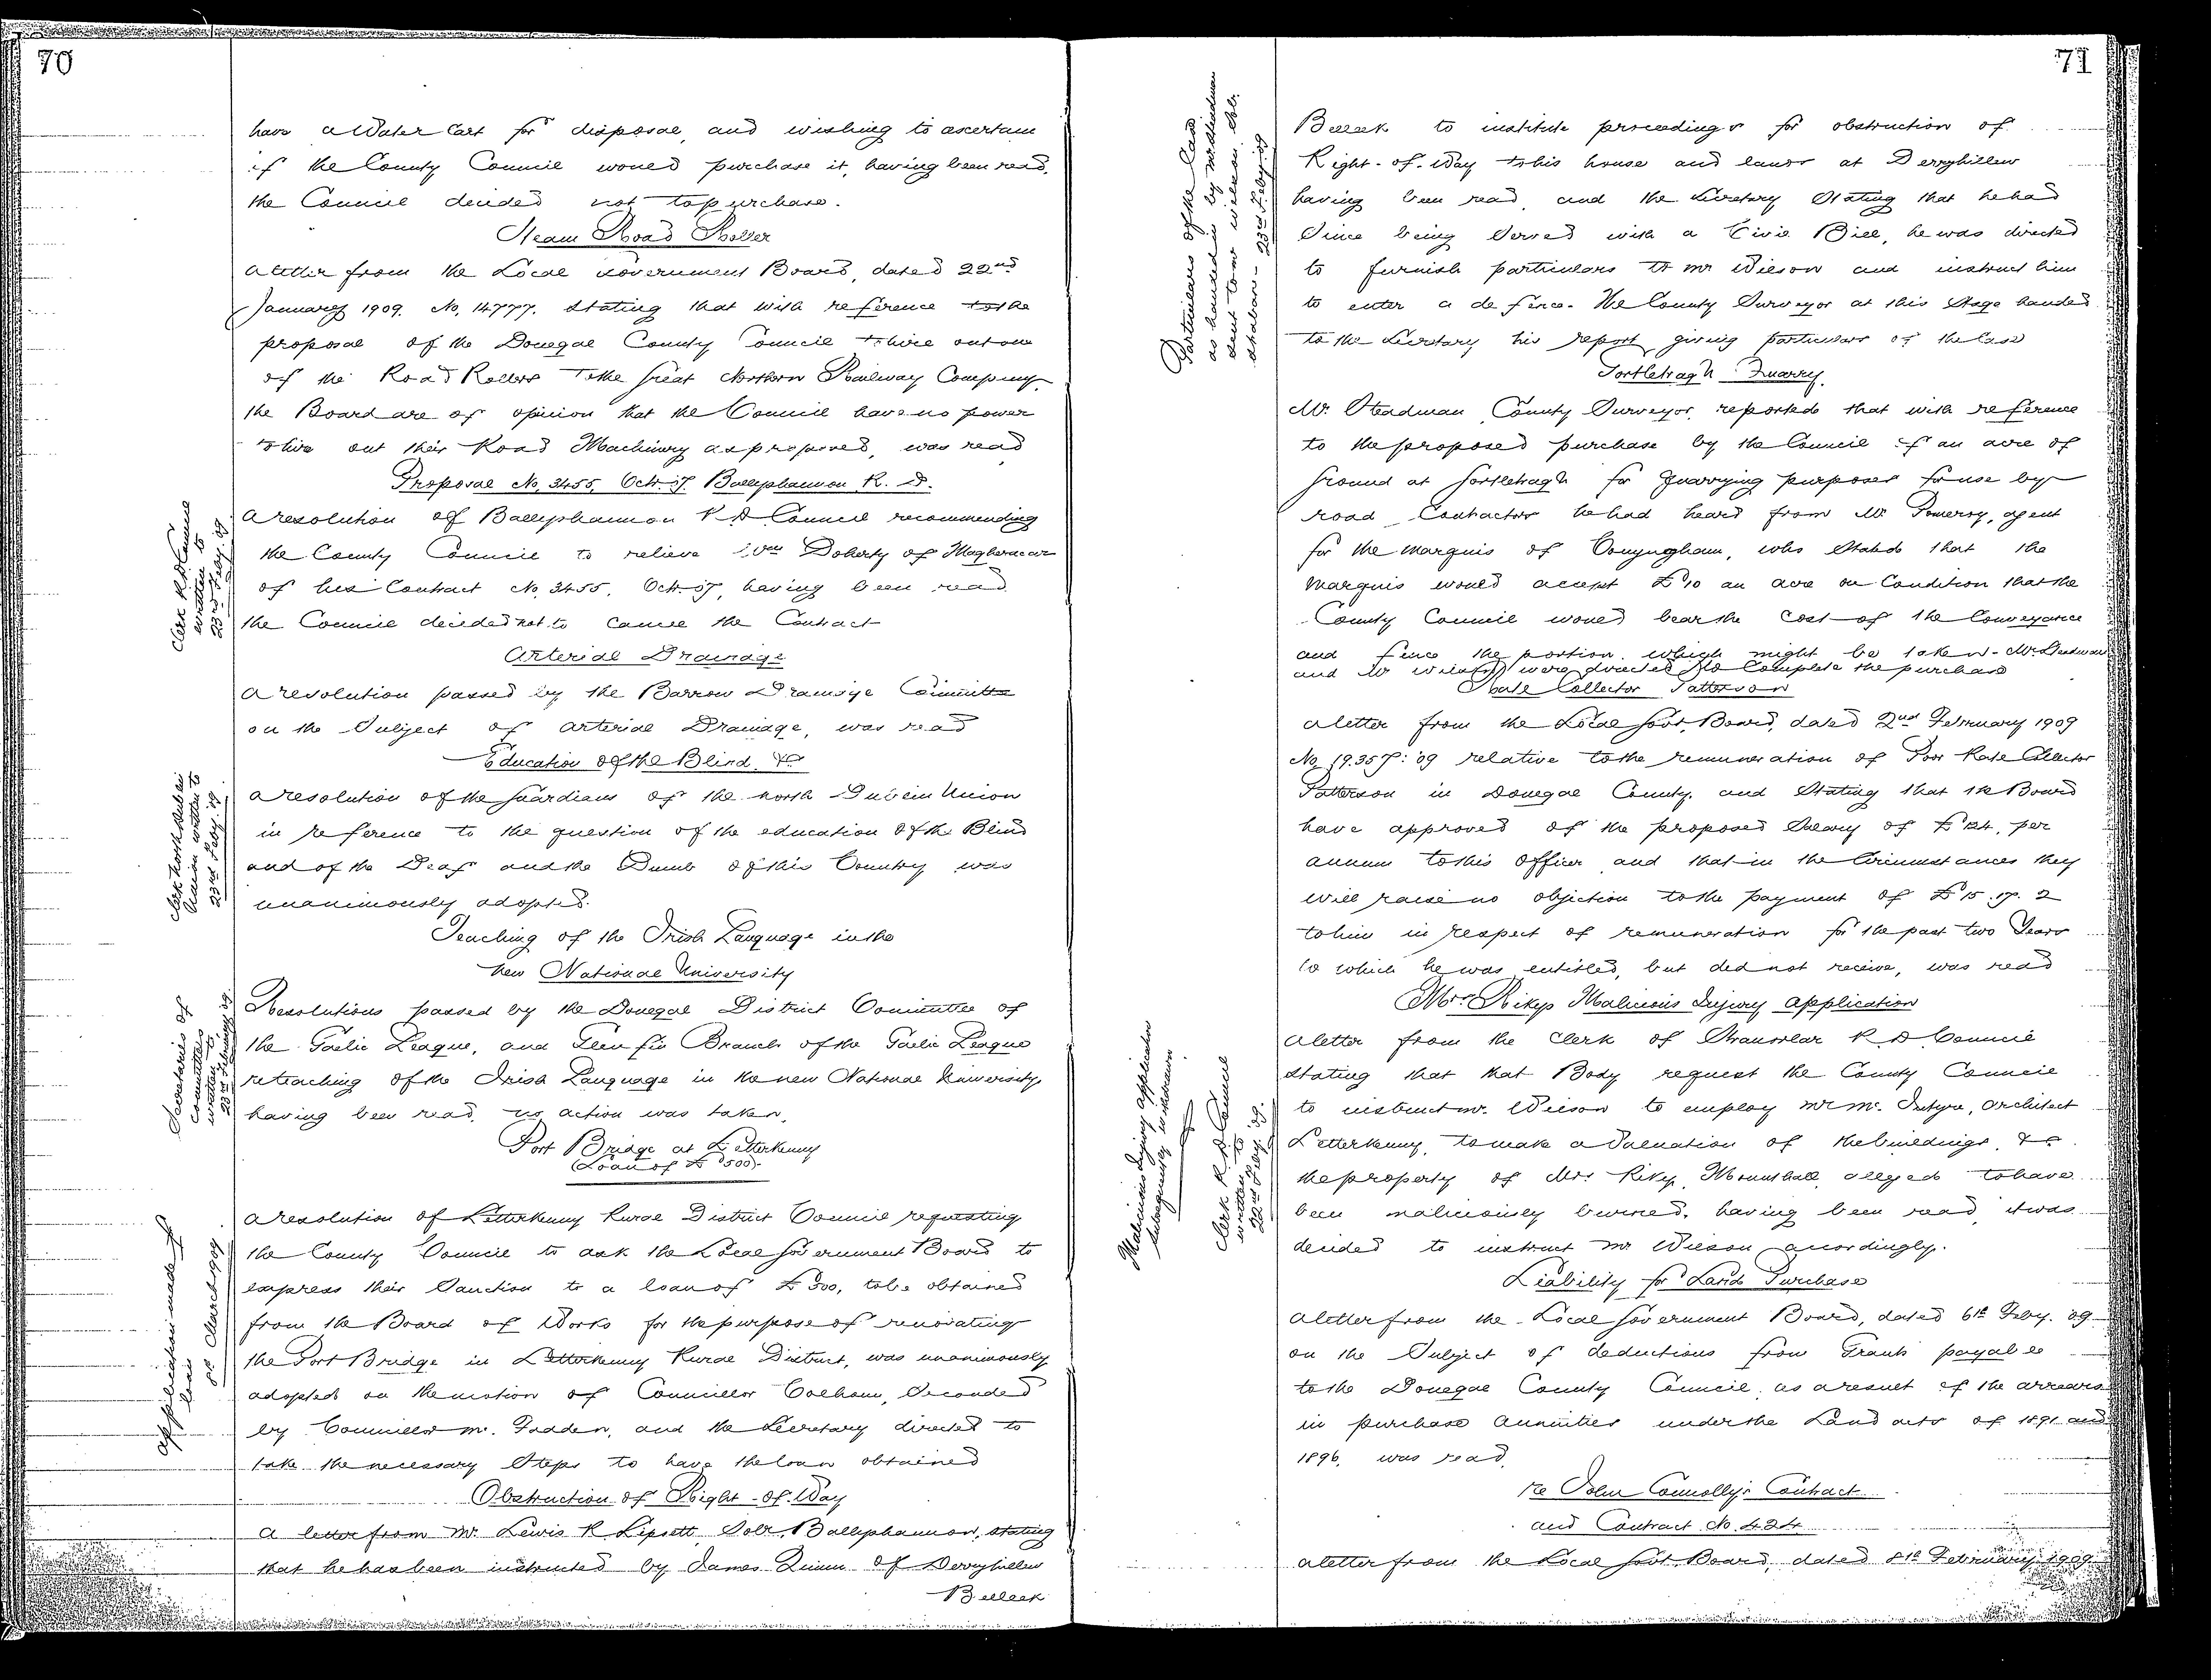 70
have a Water Cart for disposal, and wishing to ascertain
if the County Council would purchase it, having been read,
the Council decided not to purchase.
Steam Road Roller
A letter from the Local Government Board, dated 22nd
January 1909. No. 14777. Stating that with reference to the
proposal of the Donegal County Council to hire out one
of the Road Rollers to the Great Northern Railway Company
the Board are of opinion that the Council have no power
to hire out their Road Machinery as proposed, was read
Proposal No. 3455, Oct. 07. Ballyshannon R. D.
Clerk R. D. Council
written to
23rd Feby. 09
A resolution of Ballyshannon R D Council recommending
the County Council to relieve Wm Doherty of Magheracar
of his Contract No. 3455, Oct. 07, having been read
the Council decided not to cancel the Contract
Arterial Drainage
A resolution passed by the Barrow Drainage Committee
on the Subject of Arterial Drainage, was read
Education of the Blind &c
Clerk North Dublin
Union written to
23rd Feby. 09
A resolution of the Guardians of the North Dublin Union
in reference to the question of the education of the Blind
and of the Deaf and the Dumb of this Country was
unanimously adopted.
Teaching of the Irish Language in the
New National University
Secretaries of
Committees
written to
23rd February 09
Resolutions passed by the Donegal District Committee of
the Gaelic League, and Glenfin Branch of the Gaelic League
re teaching of the Irish Language in the new National University
having been read, no action was taken.
Port Bridge at Letterkenny
(Loan of £500)
Application made for
loan
8th March 1909
A resolution of Letterkenny Rural District Council requesting
the County Council to ask the Local Government Board to
express their Sanction to a loan of £500, to be obtained
from the Board of Works for the purpose of renovating
the Port Bridge in Letterkenny Rural District, was unanimously
adopted on the motion of Councillor Colhoun, Seconded
by Councillor Mc. Fadden, and the Secretary directed to
take the necessary Steps to have the loan obtained
Obstruction of Right-of-Way
A letter from Mr. Lewis R Lipsett, Solr. Ballyshannon, stating
that he has been instructed by James Quinn of Derryhillew
Belleek
71
Particulars of the Case
as handed in by Mr Steadman
sent to Mr Wilson, Solr.
Strabane - 23rd Feby. 09
Belleek to institute proceedings for obstruction of
Right-of-Way to his house and lands at Derryhillew
having been read, and the Secretary Stating that he had
Since being Served with a Civil Bill, he was directed
to furnish particulars to Mr Wilson and instruct him
to enter a defence. The County Surveyor at this Stage handed
to the Secretary his report, giving particulars of the Case
Gortletragh Quarry.
Mr. Steadman County Surveyor, reported that with reference
to the proposed purchase by the Council of an acre of
ground at Gortletragh for Quarrying purposes for use by
road Contractors he had heard from Mr. Pomeroy, agent
for the Marquis of Conyngham, who Stated that the
Marquis would accept £10 an acre on Condition that the
County Council would bear the Cost of the Conveyance
and fence the portion which might be taken. Mr. Steadman
and Mr Wilson were directed to Complete the purchase
Rate Collector Patterson
A letter from the Local Govt. Board, dated 2nd February 1909
No. 19.357:'09 relative to the remuneration of Poor Rate Collector
Patterson in Donegal County, and Stating that the Board
have approved of the proposed Salary of £124, per
annum to this Officer and that in the Circumstances they
will raise no objection to the payment of £15.17.2
to him in respect of remuneration for the past two Years
to which he was entitled, but did not receive, was read
Mrs. Rikys Malicious Injury Application
Malicious Injury application
subsequently withdrawn
Clerk R. D. Council
written to
22nd Feby. 09
A letter from the Clerk of Stranorlar R D Council
Stating that that Body request the County Council
to instruct Mr. Wilson to employ Mr Mc. Intyre, Architect
Letterkenny, to make a Valuation of the buildings, &c.
the property of Mrs Riky, Mounthall, alleged to have
been maliciously burned, having been read, it was
decided to instruct Mr Wilson accordingly.
Liability for Land Purchase
A letter from the Local Government Board, dated 6th Feby. 09
on the Subject of deductions from Grants payable
to the Donegal County Council, as a result of the arrears
in purchase Annuities under the Land acts of 1891 and
1896, was read.
re John Connolly's Contract
and Contract No. 424
A letter from the Local Govt. Board, dated 8th February 1909